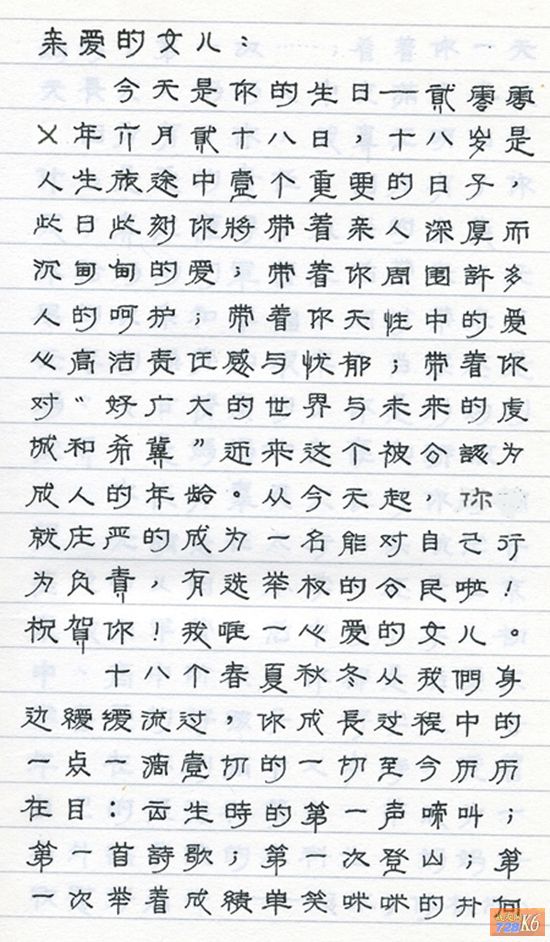 亲爱的女儿：
今天是你的生日——貳零零
乂年六月貳十八日，十八岁是
人生旅途中壹个重要的日子，
此日此刻你將带着亲人深厚而
沉甸甸的爱；带着你周围許多
人的呵护；带着你天性中的爱
心高洁责任感与忧郁；带着你
对“好广大的世界与未来的虔
城和希冀”迎来这个被公認为
成人的年龄。从今天起，你
就庄严的成为一名能对自己行
为负责，有选举权的公民啦！
祝賀你！我唯一心爱的女儿。
十八个春夏秋冬从我們身
边缓缓流过，你成長过程中的
一点一滴壹切的一切至今历历
在目：云生時的第一声啼叫；
第一首詩歌；第一次登山；第
一次举着成績单笑咪咪的升何
728K6